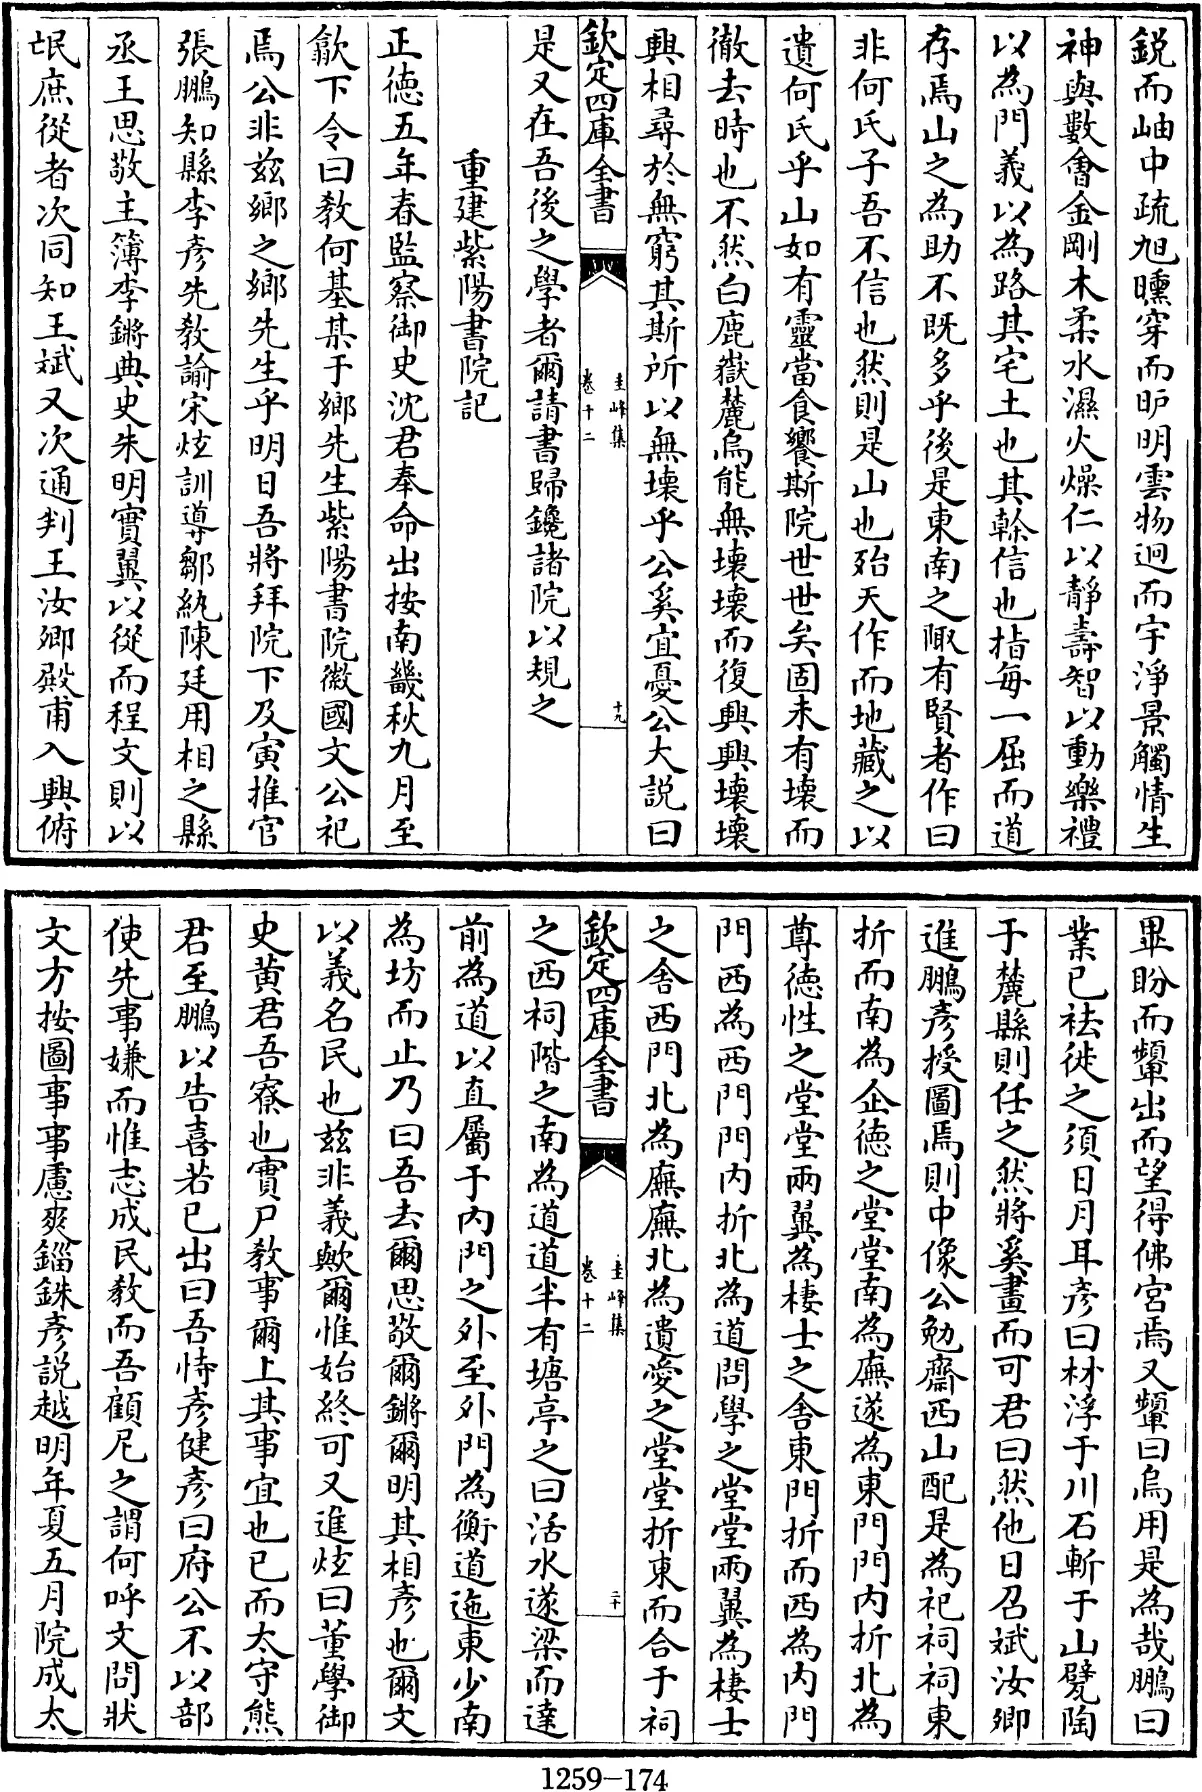 鋭而岫中疏旭曛穿而昈明雲物迥而宇淨景觸情生
神與數會金剛木柔水濕火燥仁以靜壽智以動樂禮
以為門義以為路其宅土也其榦信也指每一屈而道
存焉山之為助不既多乎後是東南之陬有賢者作曰
非何氏子吾不信也然則是山也殆天作而地藏之以
遺何氏乎山如有靈當食饗斯院世世矣固未有壞而
徹去時也不然白鹿嶽麓烏能無壞壞而復興興壞壞
興相尋於無窮其斯所以無壞乎公奚宜憂公大説曰
欽定四庫全書
圭峰集
卷十二
十九
是又在吾後之學者爾請書歸鑱諸院以規之
重建紫陽書院記
正德五年春監察御史沈君奉命出按南畿秋九月至
歙下令曰敎何基某于鄉先生紫陽書院徽國文公祀
焉公非兹鄉之鄉先生乎明日吾將拜院下及寅推官
張鵬知縣李彦先敎諭宋炫訓導鄒紈陳廷用相之縣
丞王思敬主簿李鏘典史朱明實翼以從而程文則以
氓庶從者次同知王斌又次通判王汝卿殿甫入興俯
畢盼而顰出而望得佛宫焉又顰曰烏用是為哉鵬曰
業已祛徙之須日月耳彦曰材浮于川石斬于山甓陶
于麓縣則任之然將奚畫而可君曰然他日召斌汝卿
進鵬彦授圖焉則中像公勉齋西山配是為祀祠祠東
折而南為企德之堂堂南為廡遂為東門門内折北為
尊德性之堂堂兩翼為棲士之舍東門折而西為内門
門西為西門門内折北為道問學之堂堂兩翼為棲士
之舍西門北為廡廡北為遺愛之堂堂折東而合于祠
欽定四庫全書
圭峰集
卷十二
二十
之西祠階之南為道道半有塘亭之曰活水遂梁而達
前為道以直屬于内門之外至外門為衡道迤東少南
為坊而止乃曰吾去爾思敬爾鏘爾明其相彦也爾文
以義名民也兹非義歟爾惟始終可又進炫曰董學御
史黄君吾寮也實尸敎事爾上其事宜也已而太守熊
君至鵬以告喜若已出曰吾恃彦健彦曰府公不以部
使先事嫌而惟志成民敎而吾顧尼之謂何呼文問狀
文方按圖事事慮爽錙銖彦説越明年夏五月院成太
1259—174